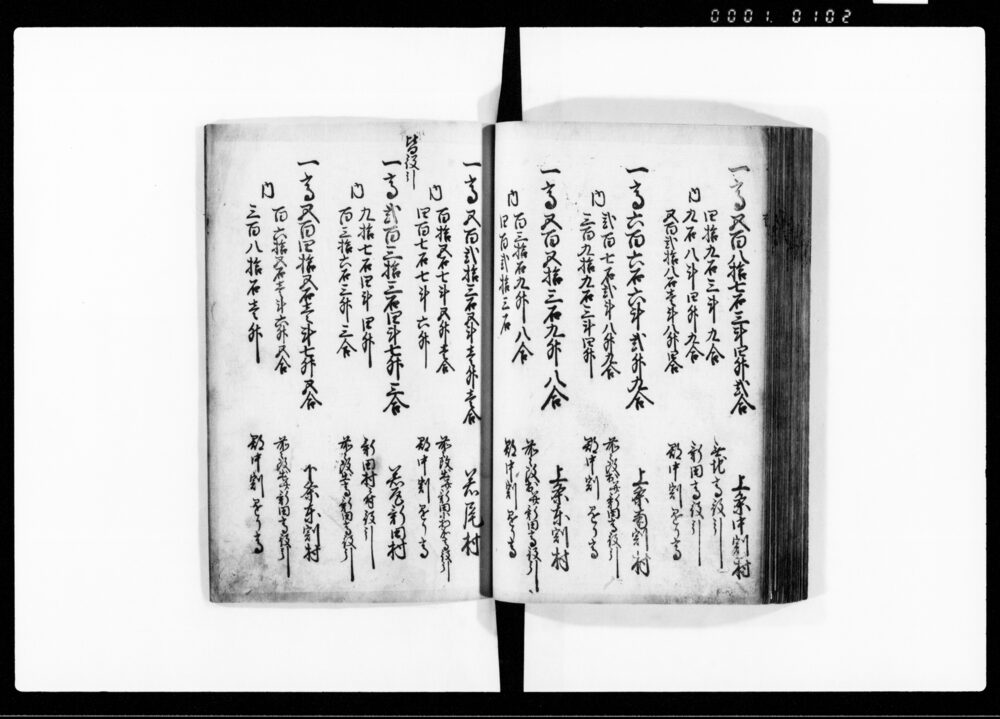 0001 0102
一高五百八拾七石三斗四升弐合 上条中割村
内
四拾九石三斗九合 無地高役引
九石八斗四升九合 新田高役引
五百弐拾八石壱斗八升四合 郡中割懸り高
一高六百六石六斗弐升九合 上条南割村
内
弐百七石弐斗八升九合 新田高役引
三百九拾九石三斗四升 郡中割懸り高
一高五百五拾三石九升八合 上条東割村
内
百三拾石九升八合 新田高役引
四百弐拾三石 郡中割懸り高
一高五百弐拾三石五斗壱升壱合 若尾村
内
百拾五石七斗五升壱合
四百七石七斗六升 郡中割懸り高
皆役引
一高弐百三拾三石四斗七升三合 若尾新田村
内
九拾七石四斗四升 新田村ニ付役引
百三拾六石三升三合
一高五百四拾五石壱斗七升五合 下条東割村
内
百六拾五石壱斗六升五合 新田高役引
三百八拾石壱升 郡中割懸り高